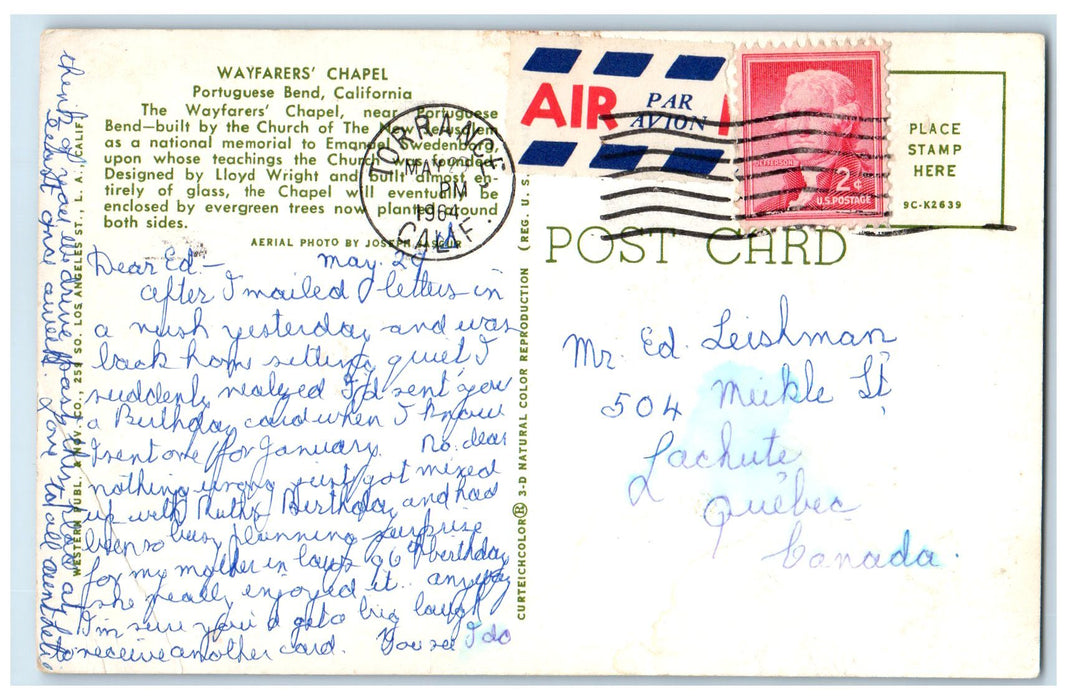 WAYFARERS' CHAPEL
Portuguese Bend, California
The Wayfarers' Chapel, near Portuguese
Bend—built by the Church of The New Jerusalem
as a national memorial to Emanuel Swedenborg,
upon whose teachings the Church was founded.
Designed by Lloyd Wright and built almost en-
tirely of glass, the Chapel will eventually be
enclosed by evergreen trees now planted around
both sides.
AERIAL PHOTO BY JOSEPH FASCUR
Dear Ed— May. 29
After I mailed letters in
a rush yesterday and was
back home setting quiet I
suddenly realized I'd sent you
a Birthday card when I know
I sent one for January. No. dear
nothing wrong just got mixed
up with Ruth's Birthday and had
been so busy planning surprise
for my mother in laws 96th birthday
she really enjoyed it. anyway
I'm sure you'd get a big laugh
to receive another card. You see I do
think of you
love to all
WESTERN PUBL. & NOV. CO., 259 SO. LOS ANGELES ST., L. A., CALIF.
CURTEICHCOLOR® 3-D NATURAL COLOR REPRODUCTION (REG. U. S.
TORRANCE,
MAY
PM
1964
CALIF.
AIR
PAR
AVION
JEFFERSON
2¢
U.S. POSTAGE
PLACE
STAMP
HERE
9C-K2639
POST CARD
Mr. Ed. Leishman
504 Meikle St
Lachute
Québec
Canada.